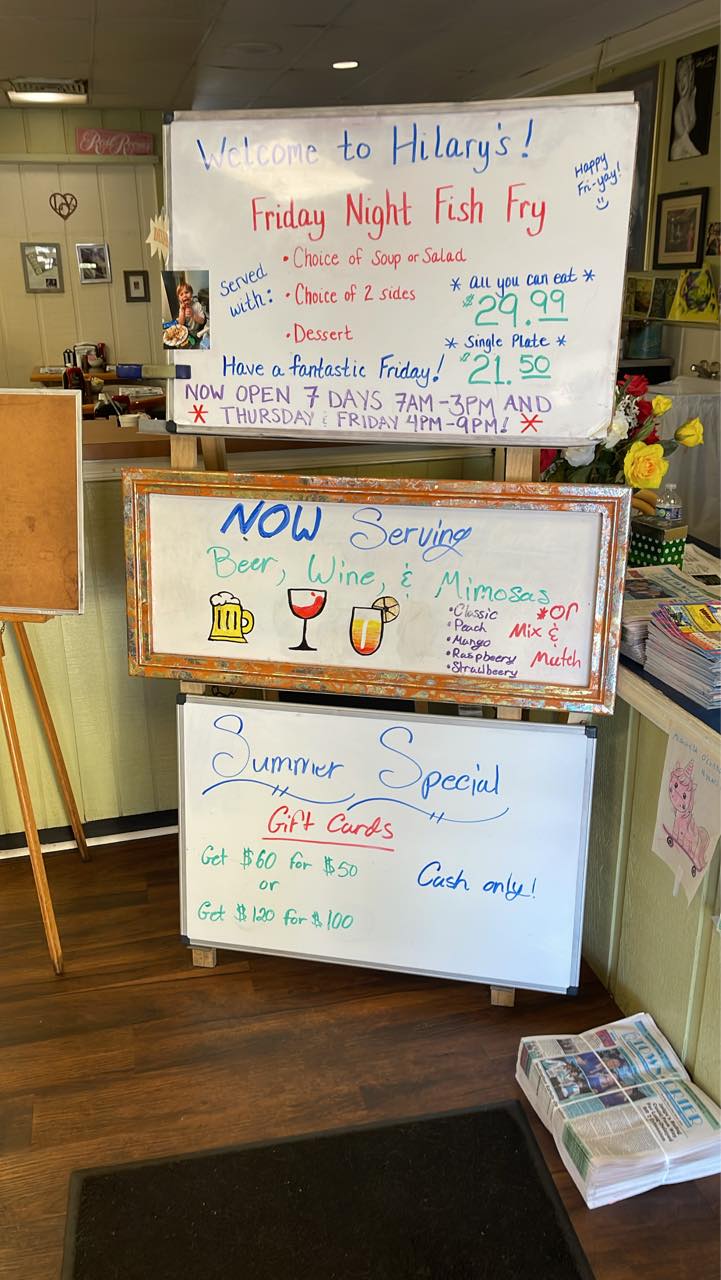 Rest Rooms
LOVE
Welcome to Hilary's!
Happy
Fri-yay!
Friday Night Fish Fry
Served
with:
• Choice of Soup or Salad
• Choice of 2 sides
• Dessert
* all you can eat *
$29.99
* Single Plate *
$21.50
Have a fantastic Friday!
NOW OPEN 7 DAYS 7AM-3PM AND
* THURSDAY & FRIDAY 4PM-9PM! *
NOW Serving
Beer, Wine, & Mimosas
• Classic
• Peach
• Mango
• Raspbeery
• Strawbeery
*or
Mix &
Match
Summer Special
Gift Cards
Get $60 for $50
or
Get $120 for $100
Cash only!
TOWN CRIER